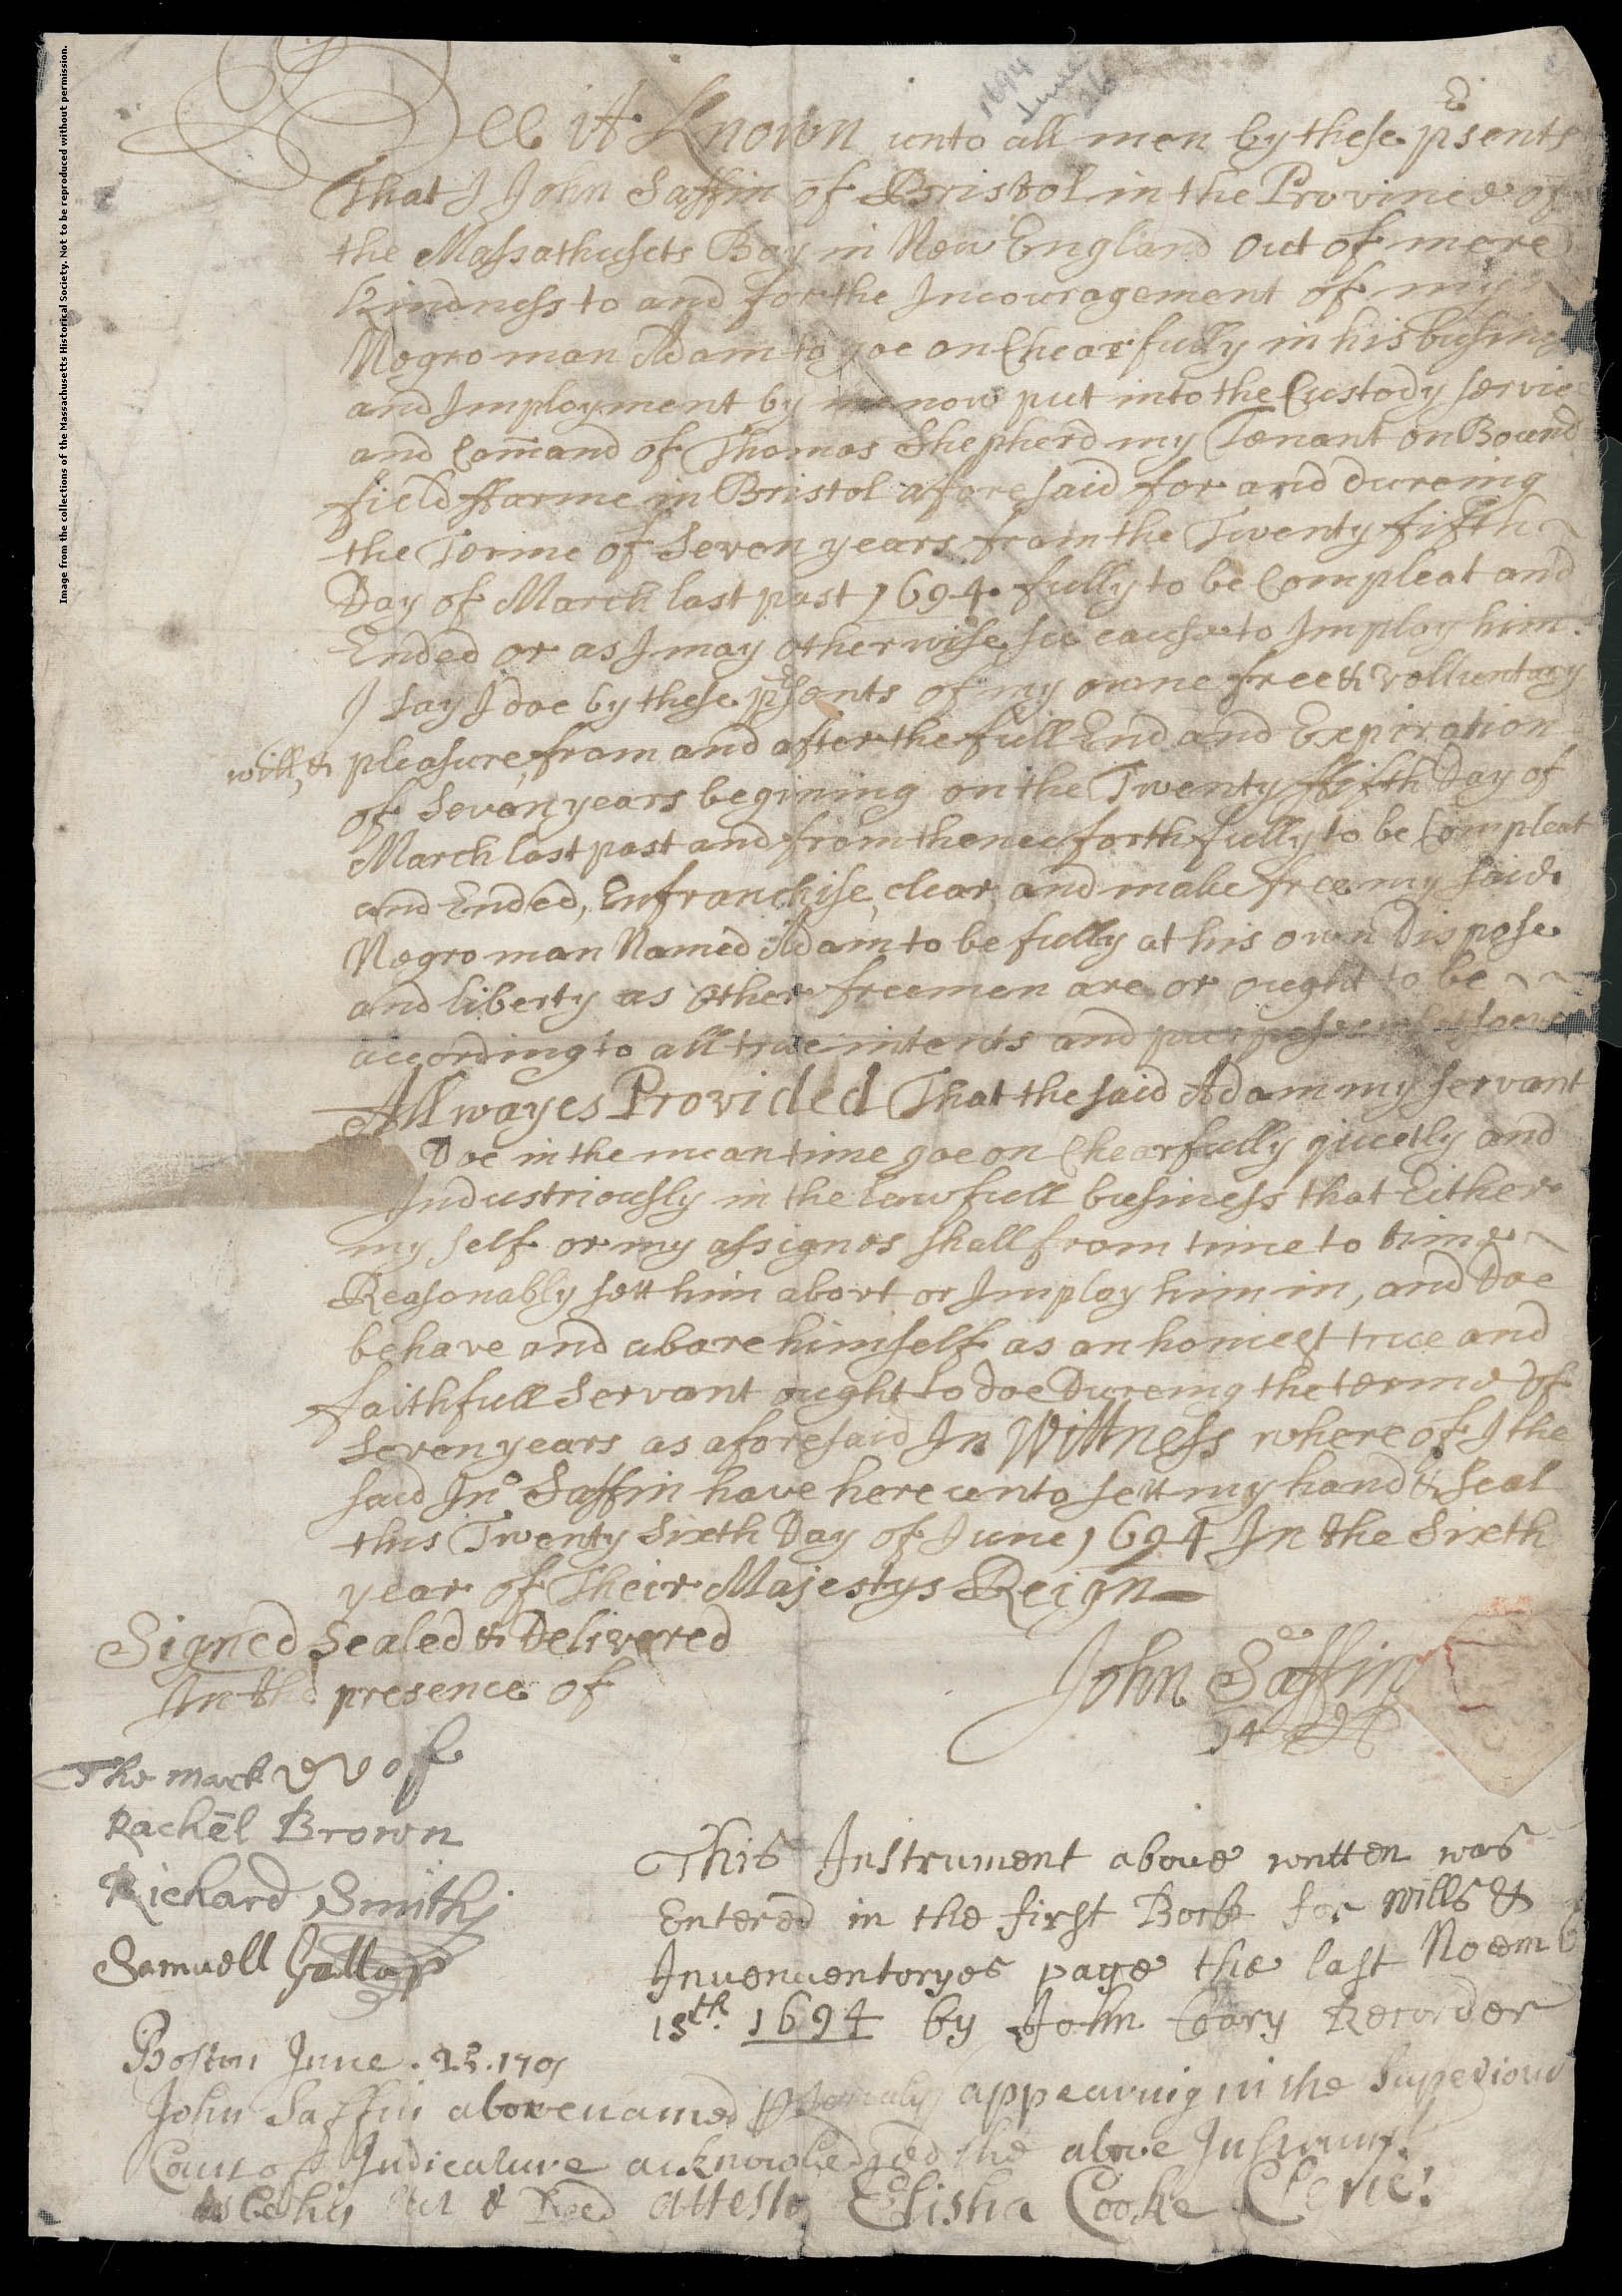 Image from the collections of the Massachusetts Historical Society. Not to be reproduced without permission.
1694
June
26
Bee it Known unto all men by these psents
That I John Saffin of Bristol in the Province of
the Massathusets Bay in New England out of meere
kindness to and for the Incouragement of my
Negro man Adam to goe on Chearfully in his busines
and Imployment by me now put into the Custody service
and Comand of Thomas Shepherd my Tenant on Bound
field ffarme in Bristol aforesaid for and dureing
the Terme of Seven years from the Twenty fifth
Day of March last past 1694. fully to be Compleat and
Ended or as I may otherwise see cause to Imploy him.
I say I doe by these psents of my owne free & volluntary
will, & pleasure from and after the full End and Expiration
of Seven years begining on the Twenty ffifth Day of
March last past and from thenceforth fully to be Compleat
and Ended, Enfranchise clear and make free my said
Negro man Named Adam to be fully at his own Dispose
and liberty as other freemen are or ought to be
according to all true intents and purposes whatsoever
Allwayes Provided That the said Adam my servant
Doe in the mean time goe on Chearfully quietly and
Industriously in the lawfull business that Either
my self or my assignes shall from time to time
Reasonably sett him about or Imploy him in, and doe
behave and abare himself as an honest true and
faithfull Servant ought to doe Dureing the terme of
Seven years as aforesaid In Wittness whereof I the
said Jno Saffin have hereunto sett my hand & Seal
this Twenty Sixth Day of June 1694 In the Sixth
year of Their Majestys Reign
Signed Sealed & Delivered
In the presence of
John Saffin
The mark of
Rachel Brown
Richard Smith
Samuell Gallop
This Instrument above written was
Entered in the first Book for Wills &
Inuenuentoryes page the last Noemb
15th. 1694 by John Cary Recorder
Boston June. 23. 1701
John Saffin abovenamed psonaly appearing in the Superiour
Court of Judicature acknowledged the above Instrumt.
to be his Act & Deed attests Elisha Cooke Cleric.